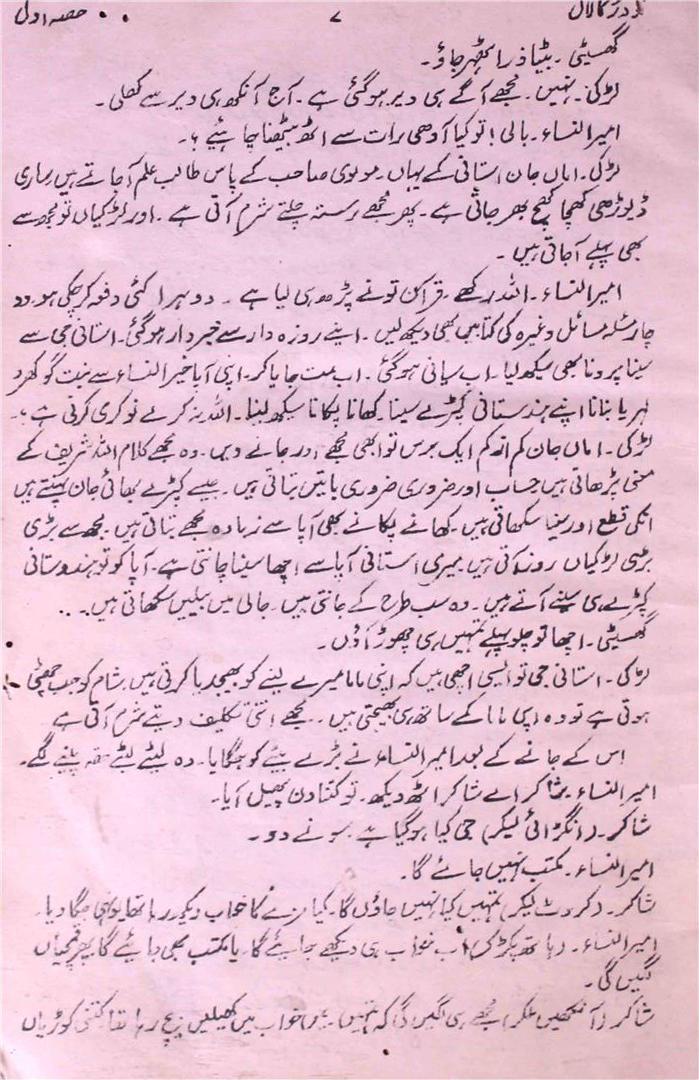 حصہ اول ۷
گھسیٹی۔ بیٹیا ذرا ٹھہر جاؤ۔
لڑکی۔ نہیں۔ مجھے آگے ہی دیر ہوگئی ہے۔ آج آنکھ ہی دیر سے کھلی۔
امیرالنساء۔ بالی! تو کیا آدھی رات سے اٹھ بیٹھنا چاہئیے؟۔
لڑکی۔ اماں جان استانی کے یہاں۔ مولوی صاحب کے پاس طالب علم آجاتے ہیں ساری
ڈیوڑھی کھچا کھچ بھر جاتی ہے۔ پھر مجھے رستہ چلتے شرم آتی ہے۔ اور لڑکیاں تو مجھ سے
بھی پہلے آجاتی ہیں۔
امیرالنساء۔ اللہ رکھے قرآن تو نے پڑھ ہی لیا ہے۔ دوہرا کئی دفعہ کر چکی ہو۔ دو
چار مسئلہ مسائل وغیرہ کی کتابیں بھی دیکھ لیں۔ اپنے روزہ دار سے خبردار ہوگئی۔ استانی جی سے
سینا پرونا بھی سیکھ لیا۔ اب سیانی ہوگئی۔ اب مت جایا کر۔ اپنی آپا خیرالنساء سے بنت گوکھرو
لہریا بنانا اپنے ہندستانی کپڑے سینا۔ کھانا پکانا سیکھ لینا۔ اللہ نہ کرے نوکری کرنی ہے۔
لڑکی۔ اماں جان کم از کم ایک برس تو ابھی مجھے اور جانے دیں۔ وہ مجھے کلام اللہ شریف کے
معنی پڑھاتی ہیں حساب اور ضروری ضروری باتیں بتاتی ہیں۔ جیسے کپڑے بھائی جان پہنتے ہیں
انکی قطع اور سینا سکھاتی ہیں۔ کھانے پکانے بھی آپا سے زیادہ مجھے بتاتی ہیں۔ مجھ سے بڑی
بڑی لڑکیاں روز آتی ہیں۔ میری استانی آپا سے اچھا سینا جانتی ہے۔ آپا کو تو ہندوستانی
کپڑے ہی سینے آتے ہیں۔ وہ سب طرح کے جانتی ہیں۔ جالی میں بیلیں سکھاتی ہیں۔...
گھسیٹی۔ اچھا تو چلو پہلے تمہیں ہی چھوڑ آؤں۔
لڑکی۔ استانی جی تو ایسی اچھی ہیں کہ اپنی ماما میرے لینے کو بھیجدیا کرتی ہیں۔ شام کو جب چھٹی
ہوتی ہے تو وہ اپنی ماما کے ساتھ ہی بھیجتی ہیں۔ مجھے اتنی تکلیف دیتے شرم آتی ہے
اس کے جانے کے بعد امیرالنساء نے بڑے بیٹے کو جگایا۔ وہ لیٹے لیٹے حقہ پینے لگے۔
امیرالنساء۔ شاکر اے شاکر اٹھ دیکھ۔ تو کتنا دن پھیل آیا۔
شاکر۔ (انگڑائی لیکر) جی کیا ہوگیا ہے سونے دو۔
امیرالنساء۔ مکتب نہیں جائے گا۔
شاکر۔ (کروٹ لیکر) تمہیں کیا نہیں جاؤں گا۔ کیا مزے کا خواب دیکھ رہا تھا یوں ہی جگا دیا۔
امیرالنساء۔ (ہاتھ پکڑ کر) اب خواب ہی دیکھے جائیے گا۔ یا مکتب بھی جائیے گا پھر قمچیاں
لگیں گی۔
شاکر (آنکھیں ملکر) مجھے ہی لگیں گی کہ تمہیں۔ میں خواب میں کھیلیں بیچ رہا تھا۔ کتنی کوڑیاں